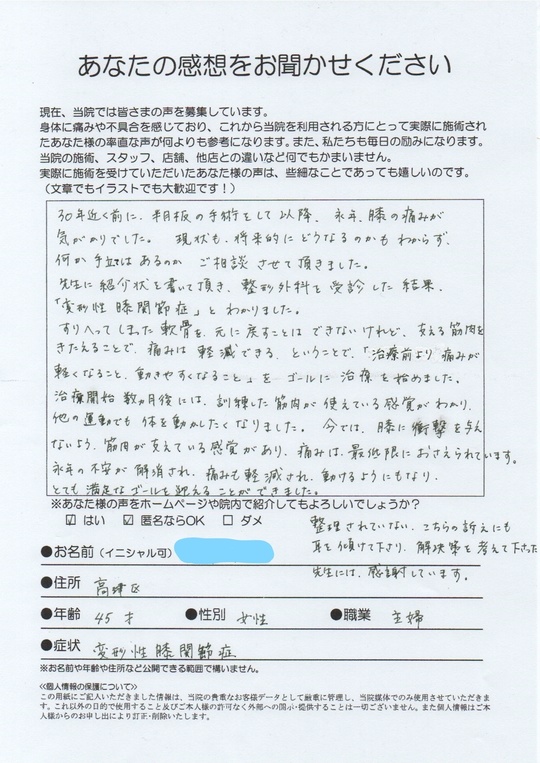 あなたの感想をお聞かせください
現在、当院では皆さまの声を募集しています。
身体に痛みや不具合を感じており、これから当院を利用される方にとって実際に施術され
たあなた様の率直な声が何よりも参考になります。また、私たちも毎日の励みになります。
当院の施術、スタッフ、店舗、他店との違いなど何でもかまいません。
実際に施術を受けていただいたあなた様の声は、些細なことであっても嬉しいのです。
(文章でもイラストでも大歓迎です!)
30年近く前に、半月板の手術をして以降、永年、膝の痛みが
気がかりでした。 現状も、将来的にどうなるのかもわからず、
何か手立てはあるのか ご相談させて頂きました。
先生に紹介状を書いて頂き、整形外科を受診した結果、
「変形性膝関節症」とわかりました。
すりへってしまった軟骨を、元に戻すことはできないけれど、支える筋肉を
きたえることで、痛みは軽減できる、ということで、「治療前より痛みが
軽くなること、動きやすくなること」をゴールに治療を始めました。
治療開始数ヵ月後には、訓練した筋肉が使えている感覚がわかり、
他の運動でも体を動かしたくなりました。今では、膝に衝撃を与え
ないよう、筋肉が支えている感覚があり、痛みは、最低限におさえられています。
永年の不安が解消され、痛みも軽減され、動けるようにもなり、
とても満足なゴールを迎えることができました。
※あなた様の声をホームページや院内で紹介してもよろしいでしょうか?
☑ はい ☑ 匿名ならOK ☐ ダメ
整理されていない、こちらの訴えにも
耳を傾けて下さり、解決策を考えて下さった
先生には、感謝しています。
●お名前(イニシャル可)
●住所 高津区
●年齢 45才 ●性別 女性 ●職業 主婦
●症状 変形性膝関節症
※お名前や年齢や住所など公開できる範囲で構いません。
≪個人情報の保護について≫
この用紙にご記入いただきました情報は、当院の貴重なお客様データとして厳重に管理し、当院媒体でのみ使用させていただきま
す。これ以外の目的で使用すること及びご本人様の許可なく外部への開示・提供することは一切ございません。また個人情報はご本
人様からのお申し出により訂正・削除いたします。